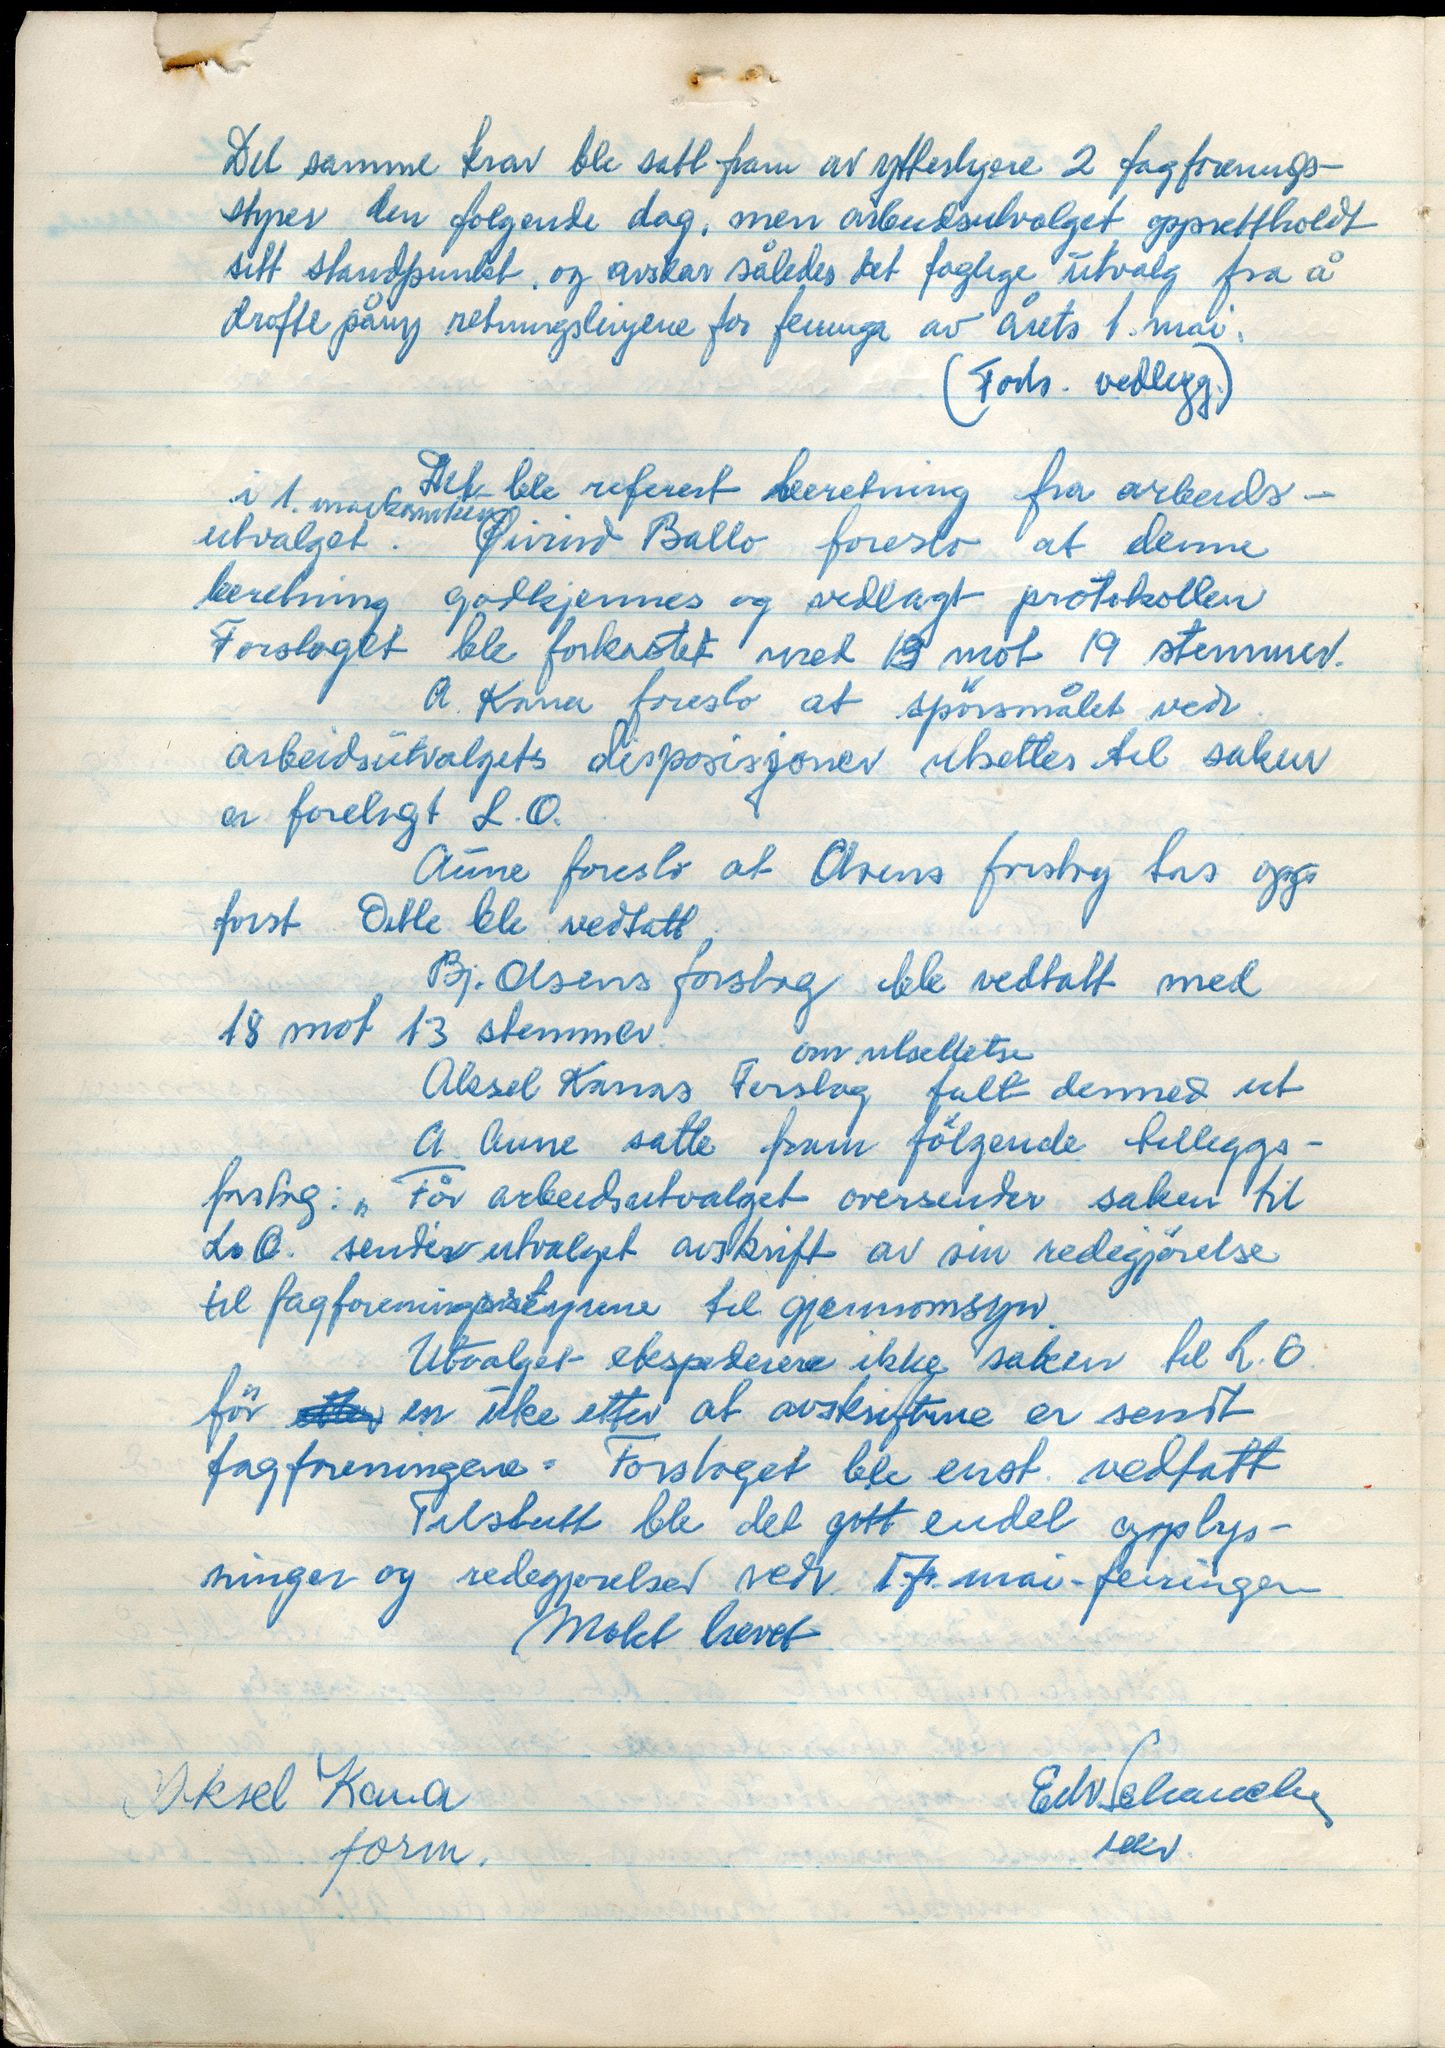 Det samme krav ble satt fram av ytterligere 2 fagforenings-
styrer den følgende dag, men arbeidsutvalget opprettholdt
sitt standpunkt, og avskar således det faglige utvalg fra å
drøfte påny retningslinjene for feiringa av årets 1. mai.
(Forts. vedlegg.)
Det ble referert beretning fra arbeids-
i 1. maikomiteen
utvalget. Øivind Ballo foreslo at denne
beretning godkjennes og vedlagt protokollen
Forslaget ble forkastet med 13 mot 19 stemmer.
A. Kana foreslo at spörsmålet vedr.
arbeidsutvalgets disposisjoner utsettes til saken
er forelagt L.O.
Aune foreslo at Olsens forslag tas opp
først Dette ble vedtatt.
Bj. Olsens forslag ble vedtatt med
18 mot 13 stemmer.
om utsettelse
Aksel Kanas Forslag falt dermed ut
A. Aune satte fram fölgende tilleggs-
forslag: „ Før arbeidsutvalget oversender saken til
L.O. sender utvalget avskrift av sin redegjörelse
til fagforeningsstyrene til gjennomsyn.
Utvalget ekspederere ikke saken til L.O.
för en uke etter at avskriftene er sendt
fagforeningene." Forslaget ble enst. vedtatt
Tilslutt ble det gitt endel opplys-
ninger og redegjørelser vedr. 1. mai-feiringen
Møtet hevet
Aksel Kana
form.
Edv. Schanche
sekr.